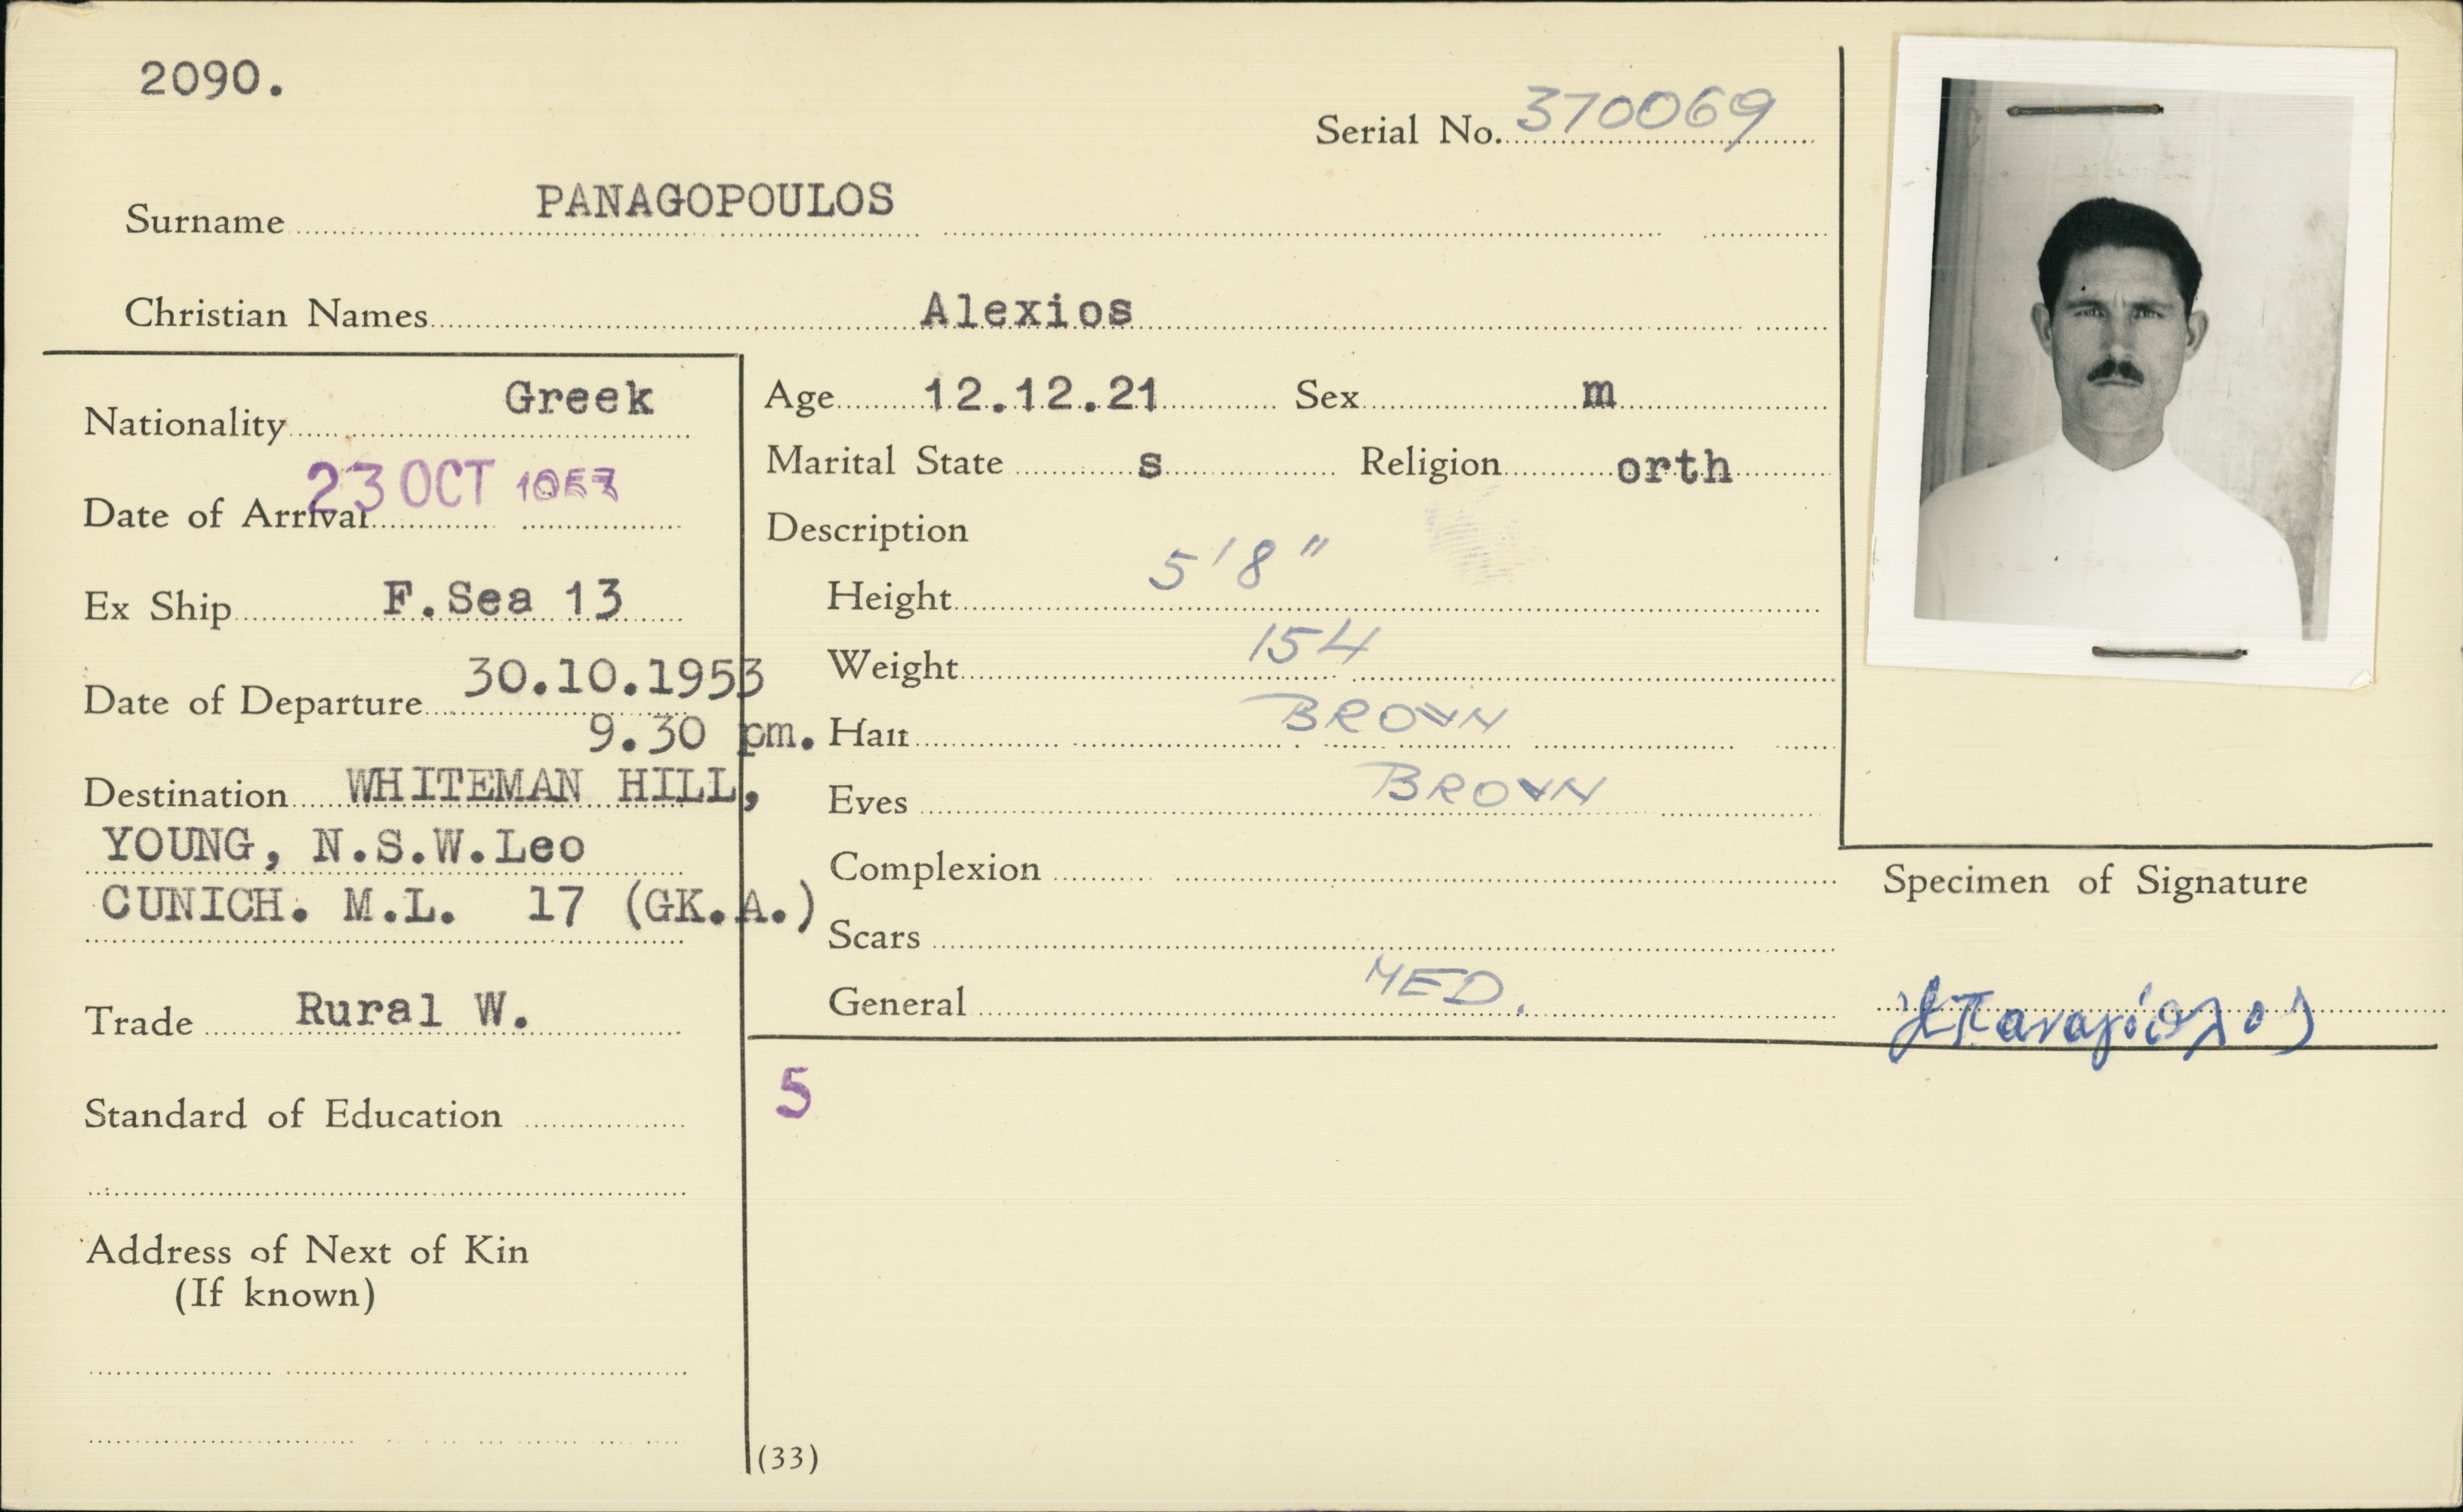 2090.
Serial No. 370069
Surname PANAGOPOULOS
Christian Names Alexios
Nationality Greek
Date of Arrival 23 OCT 1953
Ex Ship F.Sea 13
Date of Departure 30.10.1953
9.30 pm.
Destination WHITEMAN HILL,
YOUNG, N.S.W.Leo
CUNICH. M.L. 17 (GK.A.)
Trade Rural W.
Standard of Education
Address of Next of Kin
(If known)
Age 12.12.21 Sex m
Marital State s Religion orth
Description
Height 5'8"
Weight 154
Hair BROWN
Eyes BROWN
Complexion
Scars
General MED.
5
(33)
Specimen of Signature